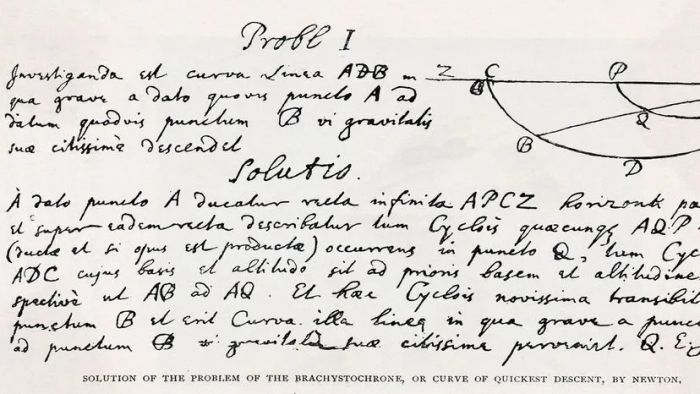 Probl I
Investiganda est curva Linea ADB in
qua grave a dato quovis puncto A ad
datum quodvis punctum B vi gravitatis
suæ citissime descendet
Z C P
B Q
D
Solutio.
A dato puncto A ducatur recta infinita APCZ horizonti pa
et super eadem recta describatur tum Cyclois quæcunq AQP
(ductæ et si opus est productæ) occurrens in puncto Q, tum Cyc
ADC cujus basis et altitudo sit ad prioris basem et altitudine
spective ut AB ad AQ. Et hæc Cyclois novissima transibit
punctum B et erit Curva illa linea in qua grave a punc
ad punctum B vi gravitatis suæ citissime perveniet. Q. E.
SOLUTION OF THE PROBLEM OF THE BRACHYSTOCHRONE, OR CURVE OF QUICKEST DESCENT, BY NEWTON,